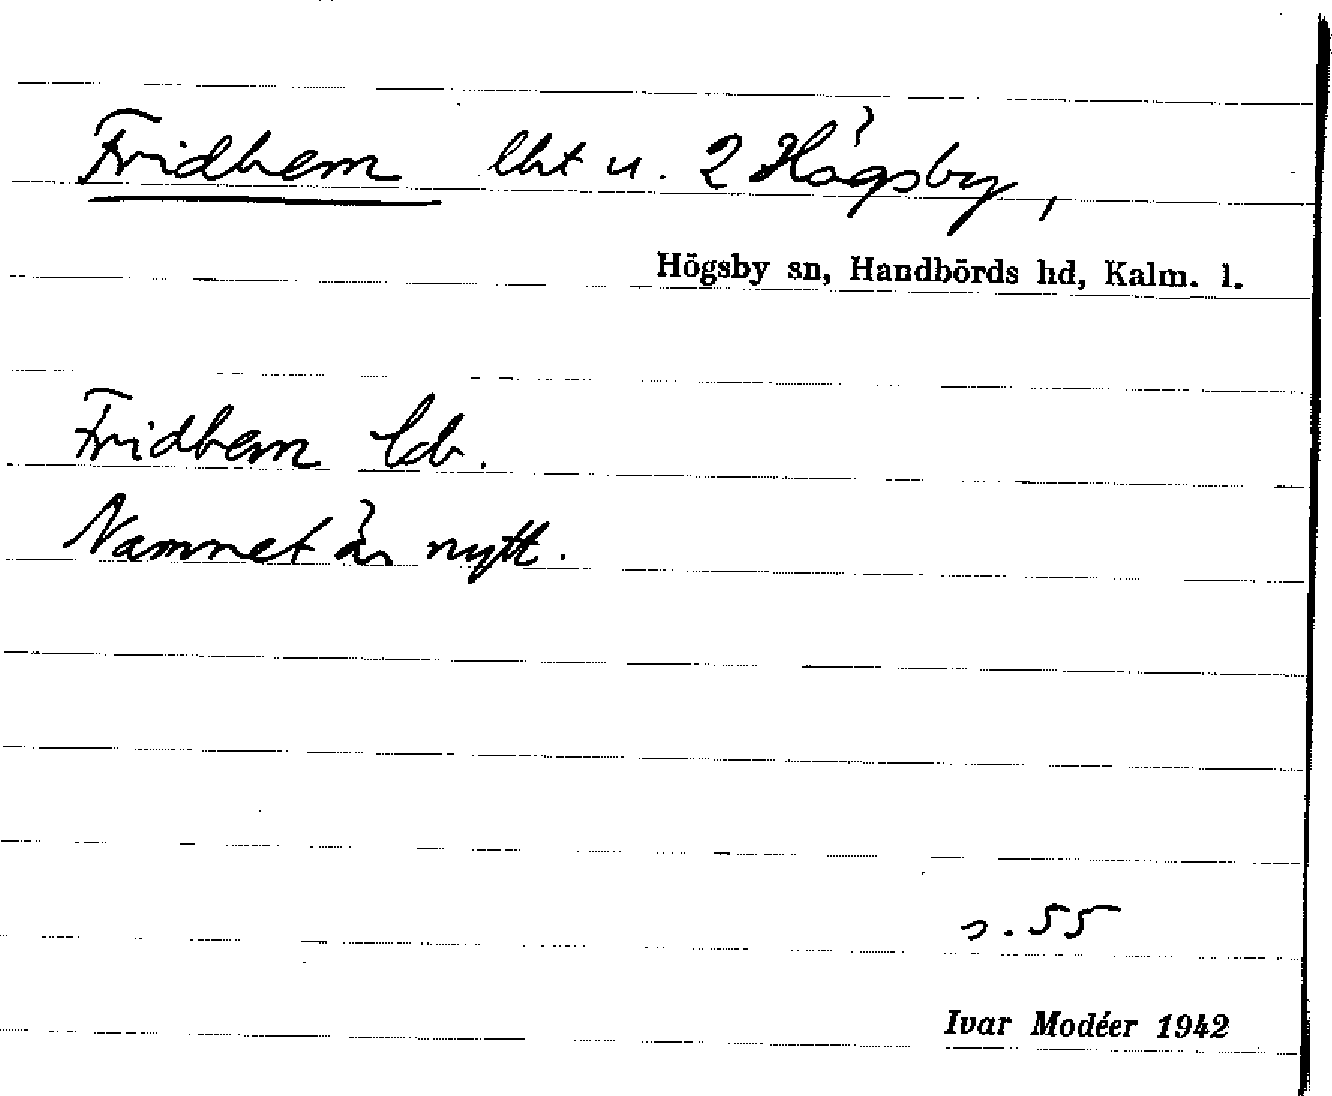 Fridhem lht u. 2 Högsby,
Högsby sn, Handbörds hd, Kalm. l.
Fridhem
Namnet är nytt.
s. 55
Ivar Modéer 1942